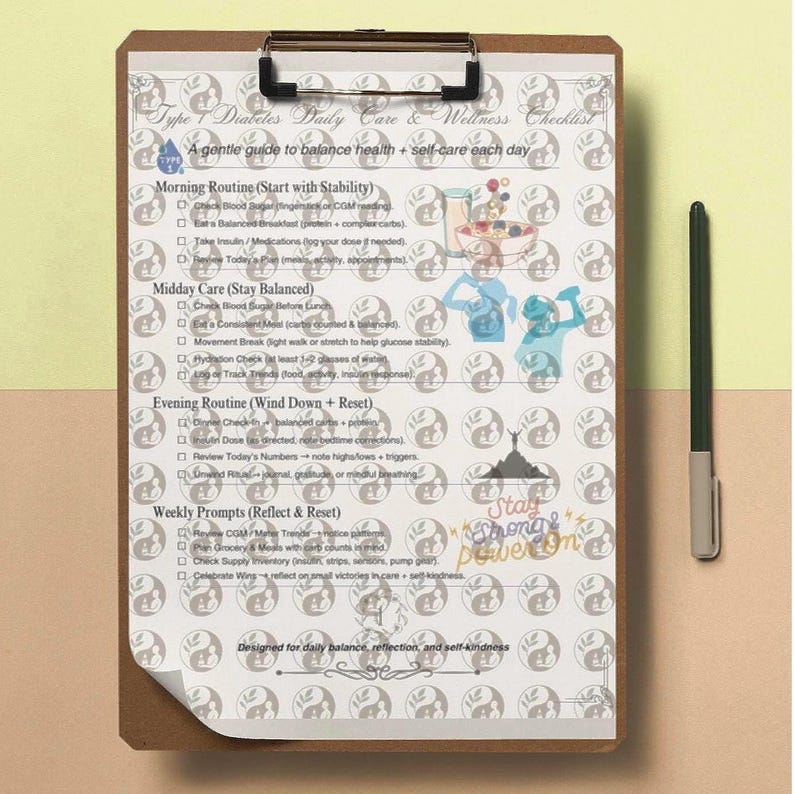 Type 1 Diabetes Daily Care & Wellness Checklist
A gentle guide to balance health + self-care each day
TYPE
1
Morning Routine (Start with Stability)
Check Blood Sugar (fingerstick or CGM reading).
Eat a Balanced Breakfast (protein + complex carbs).
Take Insulin / Medications (log your dose if needed).
Review Today's Plan (meals, activity, appointments).
Midday Care (Stay Balanced)
Check Blood Sugar Before Lunch.
Eat a Consistent Meal (carbs counted & balanced).
Movement Break (light walk or stretch to help glucose stability).
Hydration Check (at least 1–2 glasses of water).
Log or Track Trends (food, activity, insulin response).
Evening Routine (Wind Down + Reset)
Dinner Check-In → balanced carbs + protein.
Insulin Dose (as directed, note bedtime corrections).
Review Today's Numbers → note highs/lows + triggers.
Unwind Ritual → journal, gratitude, or mindful breathing.
Weekly Prompts (Reflect & Reset)
Stay
Strong &
Power On
Review CGM / Meter Trends → notice patterns.
Plan Grocery & Meals with carb counts in mind.
Check Supply Inventory (insulin, strips, sensors, pump gear).
Celebrate Wins → reflect on small victories in care + self-kindness.
1
Designed for daily balance, reflection, and self-kindness